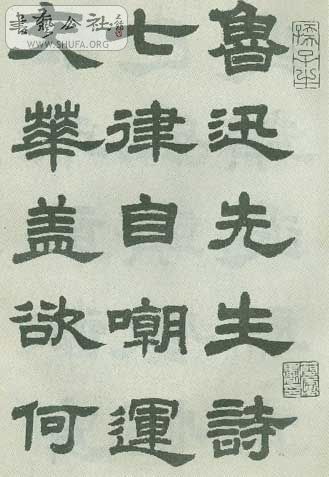 書藝公社
WWW.SHUFA.ORG
魯迅先生詩
七律自嘲運
交華盖欲何